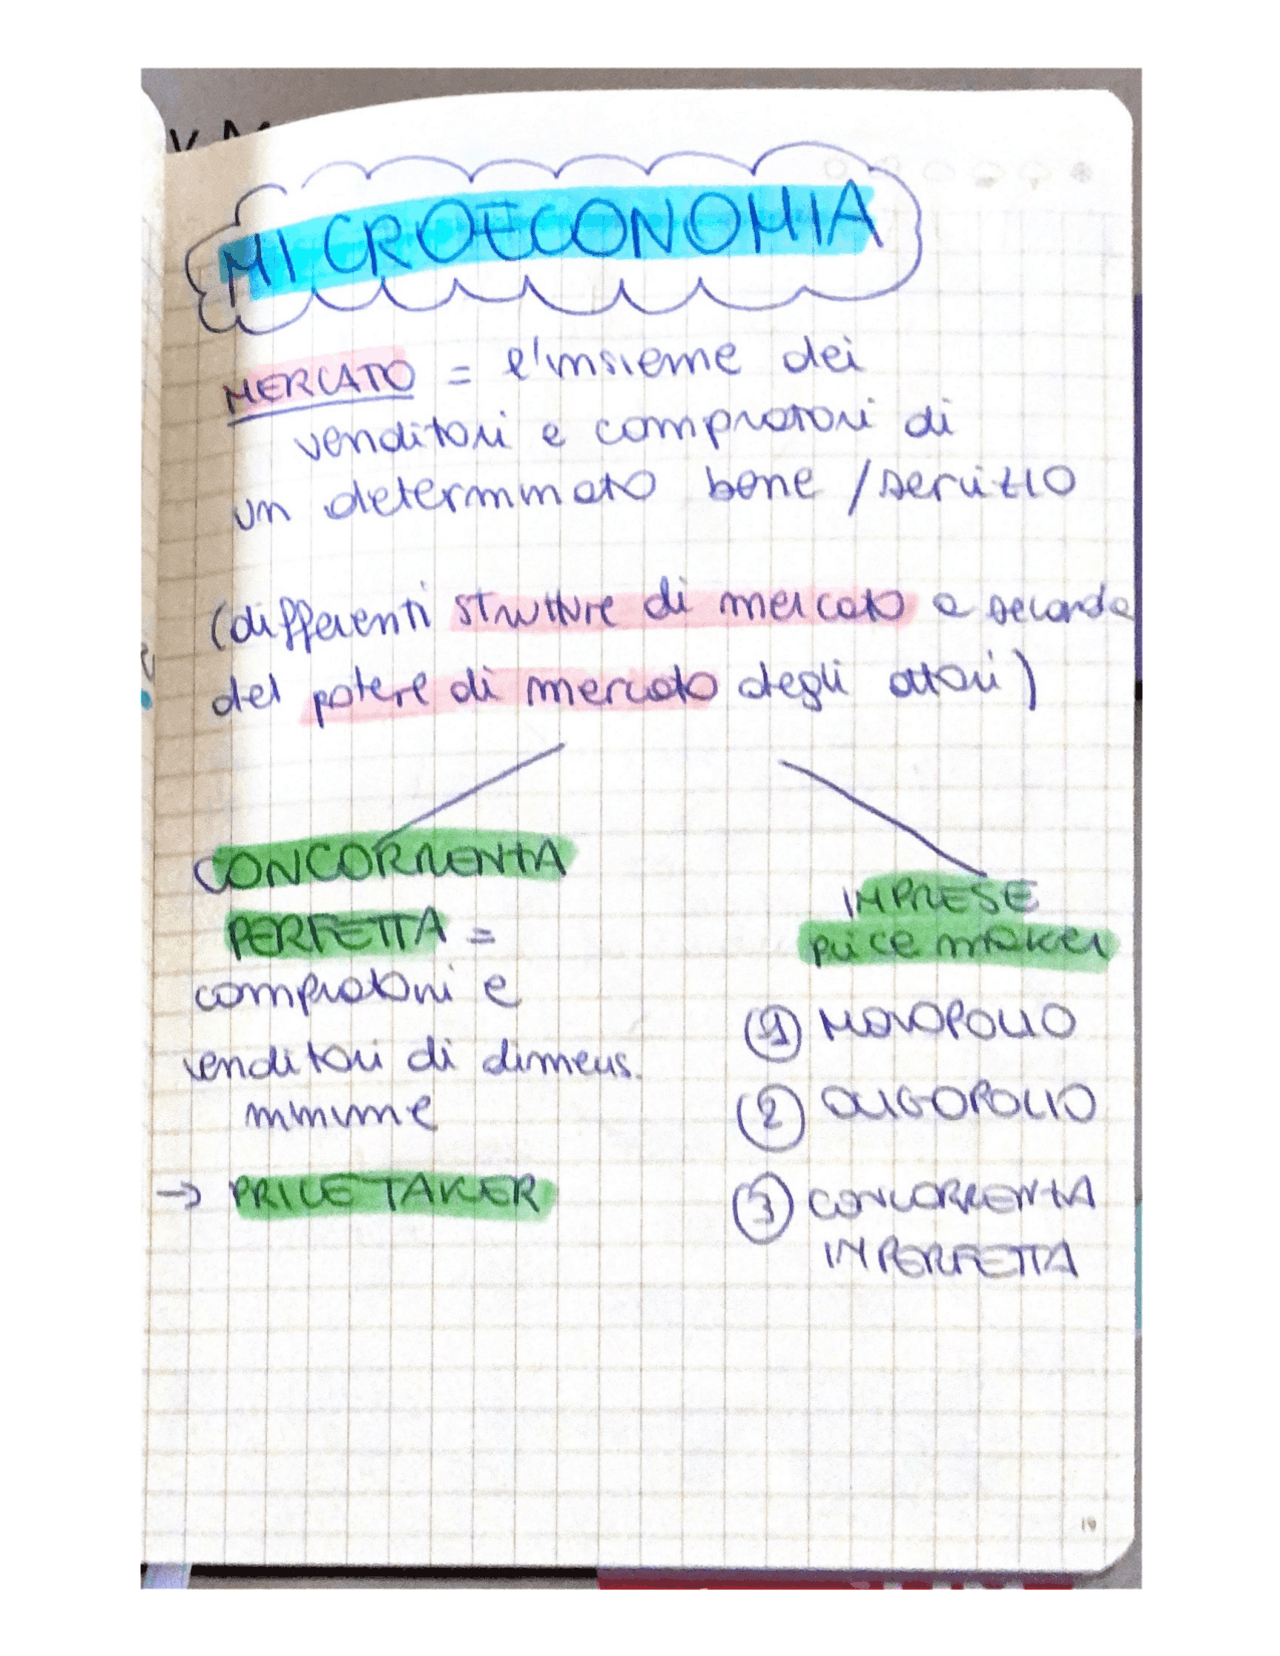 MICROECONOMIA
MERCATO = l'insieme dei
venditori e compratori di
un determinato bene / servizio
(differenti strutture di mercato a seconda
del potere di mercato degli attori)
CONCORRENZA
PERFETTA =
compratori e
venditori di dimens.
minime
→ PRICE TAKER
IMPRESE
price maker
① MONOPOLIO
② OLIGOPOLIO
③ CONCORRENZA
IMPERFETTA